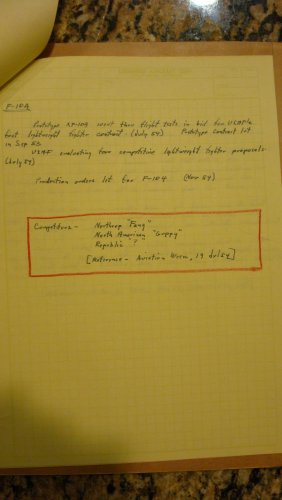 F-104
Prototype XF-104 went thru flight tests in bid for USAF's
first lightweight fighter contract (July 54). Prototype contract let
in Sep 53.
USAF evaluating four competitive lightweight fighter proposals
(July 54)
Production orders let for F-104 (Nov 54)
Competitors - Northrop "Fang"
North American "Guppy"
Republic "?"
[Reference - Aviation Week, 19 Jul 54]